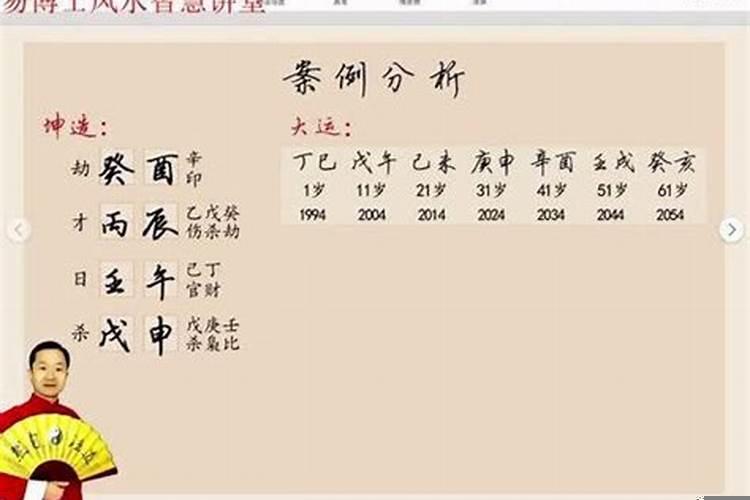 易博士风水智慧讲堂
案例分析
坤造：
劫 癸 酉 辛
印
才 丙 辰 乙戊癸
伤杀劫
日 壬 午 己丁
官财
杀 戊 申 戊庚壬
杀枭比
大运：
丁巳 戊午 己未 庚申 辛酉 壬戌 癸亥
1岁 11岁 21岁 31岁 41岁 51岁 61岁
1994 2004 2014 2024 2034 2044 2054